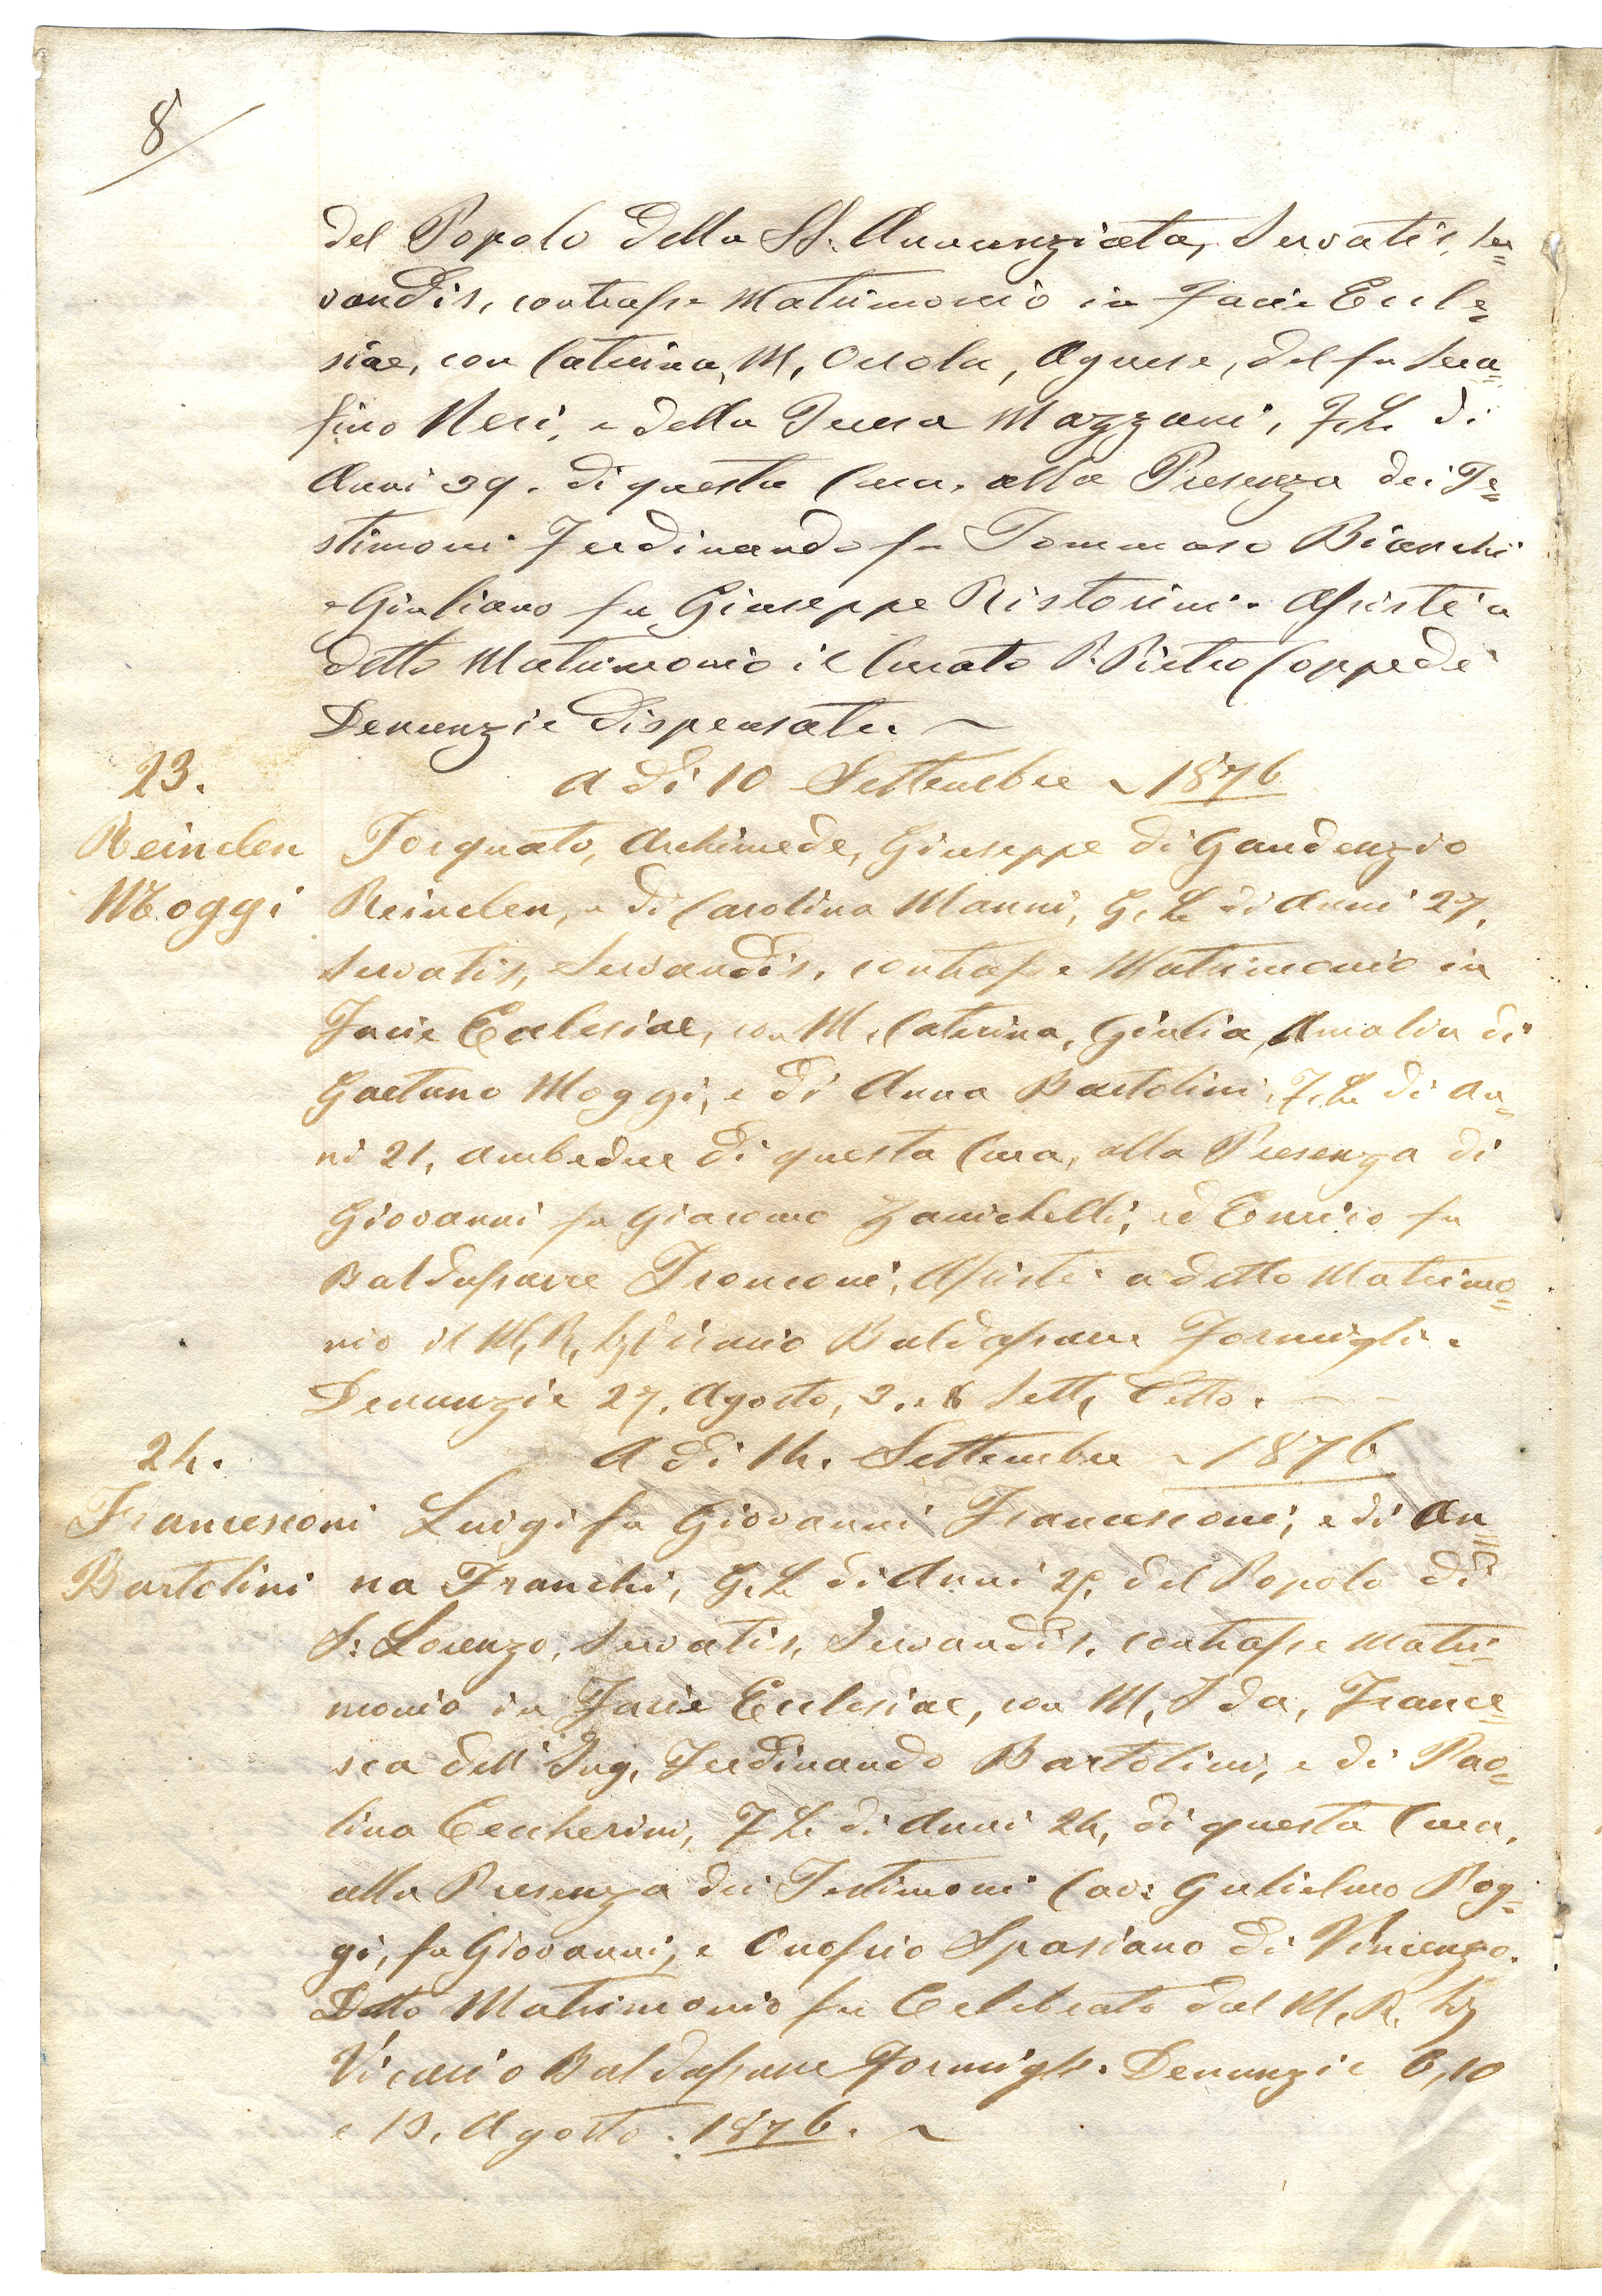 8
del Popolo della SS. Annunziata, Servatis, Ser=
vandis, contrasse Matrimonio in Facie Eccle=
siae, con Caterina, M, Orsola, Agnese, del fu Sera=
fino Neri, e della Teresa Mazzoni, F. L. di
Anni 39. di questa Cura, alla Presenza dei Te=
stimoni Ferdinando fu Tommaso Bianchi
e Giuliano fu Giuseppe Ristorini. Assistè a
detto Matrimonio il Curato P. Pietro Coppedè
Denunzie dispensate. ~
23.
A dì 10 Settembre ~ 1876
Reinclen
Moggi
Torquato, Archimede, Giuseppe di Gaudenzio
Reinclen, e di Carolina Manni, G. L. di Anni 27,
Servatis, Servandis, contrasse Matrimonio in
Facie Ecclesiae, con M. Caterina, Giulia, Amalia di
Gaetano Moggi, e di Anna Bartolini, F. L. di An=
ni 21, ambedue di questa Cura, alla Presenza di
Giovanni fu Giacomo Zanichelli, ed Enrico fu
Baldassarre Tronconi, Assistè a detto Matrimo=
nio il M. R. Vicario Baldassarre Formigli.
Denunzie 27, Agosto, 3. e 8 Sett, Detto. — —
24.
A dì 14. Settembre ~ 1876
Francesconi
Bartolini
Luigi fu Giovanni Francesconi, e di An=
na Franchi, G. L. di Anni del Popolo di
S: Lorenzo, Servatis, Servandis, contrasse Matri=
monio in Facie Ecclesiae, con M, Ida, France=
sca dell' Ing. Ferdinando Bartolini, e di Pao=
lina Ceccherini, F. L. di Anni 24, di questa Cura,
alla Presenza dei Testimoni Cav: Gulielmo Pog=
gi, fu Giovanni, e Onofrio Spasiano di Vincenzo.
Detto Matrimonio fu Celebrato dal M. R.
Vicario Baldassarre Formigli. Denunzie 6, 10
e 13, Agosto. 1876. ~